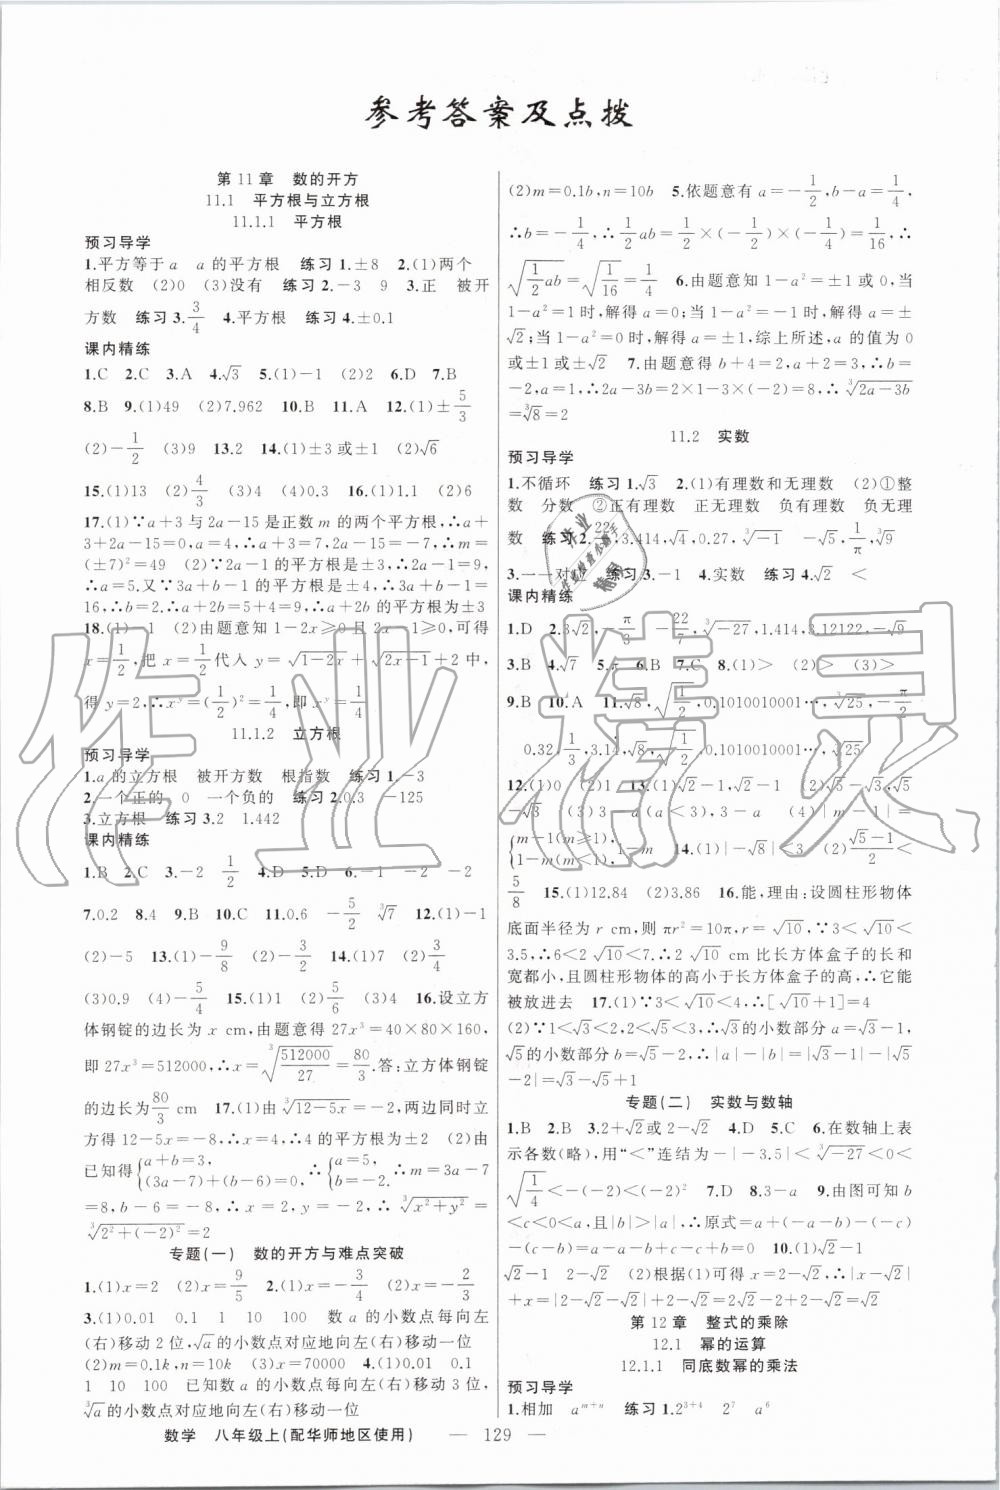 参考答案及点拨
第11章　数的开方
11.1　平方根与立方根
11.1.1　平方根
预习导学
1.平方等于a　a的平方根　练习1.±8　2.(1)两个
相反数　(2)0　(3)没有　练习2.-3　9　3.正　被开
方数　练习3.3/4　4.平方根　练习4.±0.1
课内精练
1.C　2.C　3.A　4.√3　5.(1)-1　(2)2　6.D　7.B
8.B　9.(1)49　(2)7.962　10.B　11.A　12.(1)±5/3
(2)-1/2　(3)9　13.2　14.(1)±3或±1　(2)√6
15.(1)13　(2)4/3　(3)4　(4)0.31　16.(1)1.1　(2)6
17.(1)∵a+3与2a-15是正数m的两个平方根,∴a+
3+2a-15=0,∴a=4,∴a+3=7,2a-15=-7,∴m=
(±7)²=49　(2)∵2a-1的平方根是±3,∴2a-1=9,
∴a=5,又∵3a+b-1的平方根是±4,∴3a+b-1=
16,∴b=2,∴a+2b=5+4=9,∴a+2b的平方根为±3
18.(1)-1　(2)由题意知1-2x≥0且2x-1≥0,可得
x=1/2,把x=1/2代入y=√(1-2x)+√(2x-1)+2中,
得y=2,∴x^y=(1/2)²=1/4,即x^y=1/4
11.1.2　立方根
预习导学
1.a的立方根　被开方数　根指数　练习1.-3
2.一个正的　0　一个负的　练习2.0.3　-125
3.立方根　练习3.2　1.442
课内精练
1.B　2.C　3.-2　1/2　4.D　5.D　6.-2　-2　-2
7.0.2　8.4　9.B　10.B　11.0.6　-5/2　∛7　12.(1)-1
(2)-5　13.(1)-9/8　(2)-3/2　14.(1)7　(2)3/4
(3)0.9　(4)-5/4　15.(1)1　(2)5/6　(3)4　16.设立方
体钢锭的边长为x cm,由题意得27x³=40×80×160,
即27x³=512000,∴x=∛(512000/27)=80/3.答:立方体钢锭
的边长为80/3 cm　17.(1)由∛(12-5x)=-2,两边同时立
方得12-5x=-8,∴x=4,∴4的平方根为±2　(2)由
已知得{a+b=3,(3a-7)+(b-6)=0,∴{a=5,b=-2.∴m=3a-7
=8,b-6=-8,∴x=2,y=-2,∴∛(x²+y²)=
∛(2²+(-2)²)=2
专题(一)　数的开方与难点突破
1.(1)x=2　(2)x=9/5　2.(1)x=-3/4　(2)x=-2/3
3.(1)0.01　0.1　1　10　100　数a的小数点每向左
(右)移动2位,√a的小数点对应地向左(右)移动一位
(2)m=0.1k,n=10k　(3)x=70000　4.(1)0.01　0.1
1　10　100　已知数a的小数点每向左(右)移动3位,
∛a的小数点对应地向左(右)移动一位
(2)m=0.1b,n=10b　5.依题意有a=-1/2,b-a=1/4,
∴b=-1/4,∴1/2ab=1/2×(-1/2)×(-1/4)=1/16,∴
√(1/2ab)=√(1/16)=1/4　6.由题意知1-a²=±1或0,当
1-a²=1时,解得a=0;当1-a²=-1时,解得a=±
√2;当1-a²=0时,解得a=±1,综上所述,a的值为0
或±1或±√2　7.由题意得b+4=2,a+2=3,∴b=
-2,a=1,∴2a-3b=2×1-3×(-2)=8,∴∛(2a-3b)
=∛8=2
11.2　实数
预习导学
1.不循环　练习1.√3　2.(1)有理数和无理数　(2)①整
数　分数　②正有理数　正无理数　负有理数　负无理
数　练习2.22/7,3.414,√4,0.27,∛-1　-√5,1/π,∛9
3.一一对应　练习3.-1　4.实数　练习4.√2　<
课内精练
1.D　2.3√2,-π/3　-22/7,∛-27,1.414,3.12122,-√9
3.B　4.√7　5.π　6.B　7.C　8.(1)>　(2)>　(3)>
9.B　10.A　11.√8,√(1/2),0.1010010001…,∛25,-π/2
0.32,1/3,3.14,√8,√(1/2),0.1010010001…,∛25
12.(1)0　(2)1　13.(1)√2-1,√2-1　(2)√5-√3,√5
-√3　(3)3-a(a<3),3-a　(4)|m-1|=
{m-1(m≥1),1-m(m<1)　14.(1)|-√8|<3　(2)(√5-1)/2<
5/8　15.(1)12.84　(2)3.86　16.能,理由:设圆柱形物体
底面半径为r cm,则πr²=10π,r=√10,∵3<√10<
3.5,∴6<2√10<7,∴2√10 cm比长方体盒子的长和
宽都小,且圆柱形物体的高小于长方体盒子的高,∴它能
被放进去　17.(1)∵3<√10<4,∴[√10+1]=4
(2)∵1<√3<2,2<√5<3,∴√3的小数部分a=√3-1,
√5的小数部分b=√5-2,∴|a|-|b|=|√3-1|-|√5
-2|=√3-√5+1
专题(二)　实数与数轴
1.B　2.B　3.2+√2或2-√2　4.D　5.C　6.在数轴上表
示各数(略),用“<”连结为-|-3.5|<∛-27<0<
√(1/4)<-(-2)<(-2)²　7.D　8.3-a　9.由图可知b
<c<0<a,且|b|>|a|,∴原式=a+(-a-b)-(-c)
-(b+c)=a-a-b+c-b-c=-2b　10.(1)√2-1
√2-1　2-√2　(2)根据(1)可得x=2-√2,∴|x-√2|
+x=|2-√2-√2|+2-√2=2√2-2+2-√2=√2
第12章　整式的乘除
12.1　幂的运算
12.1.1　同底数幂的乘法
预习导学
1.相加　a^(m+n)　练习1.2^(3+4)　2⁷　a⁶
数学　八年级上(配华师地区使用)　— 129 —
作业精灵